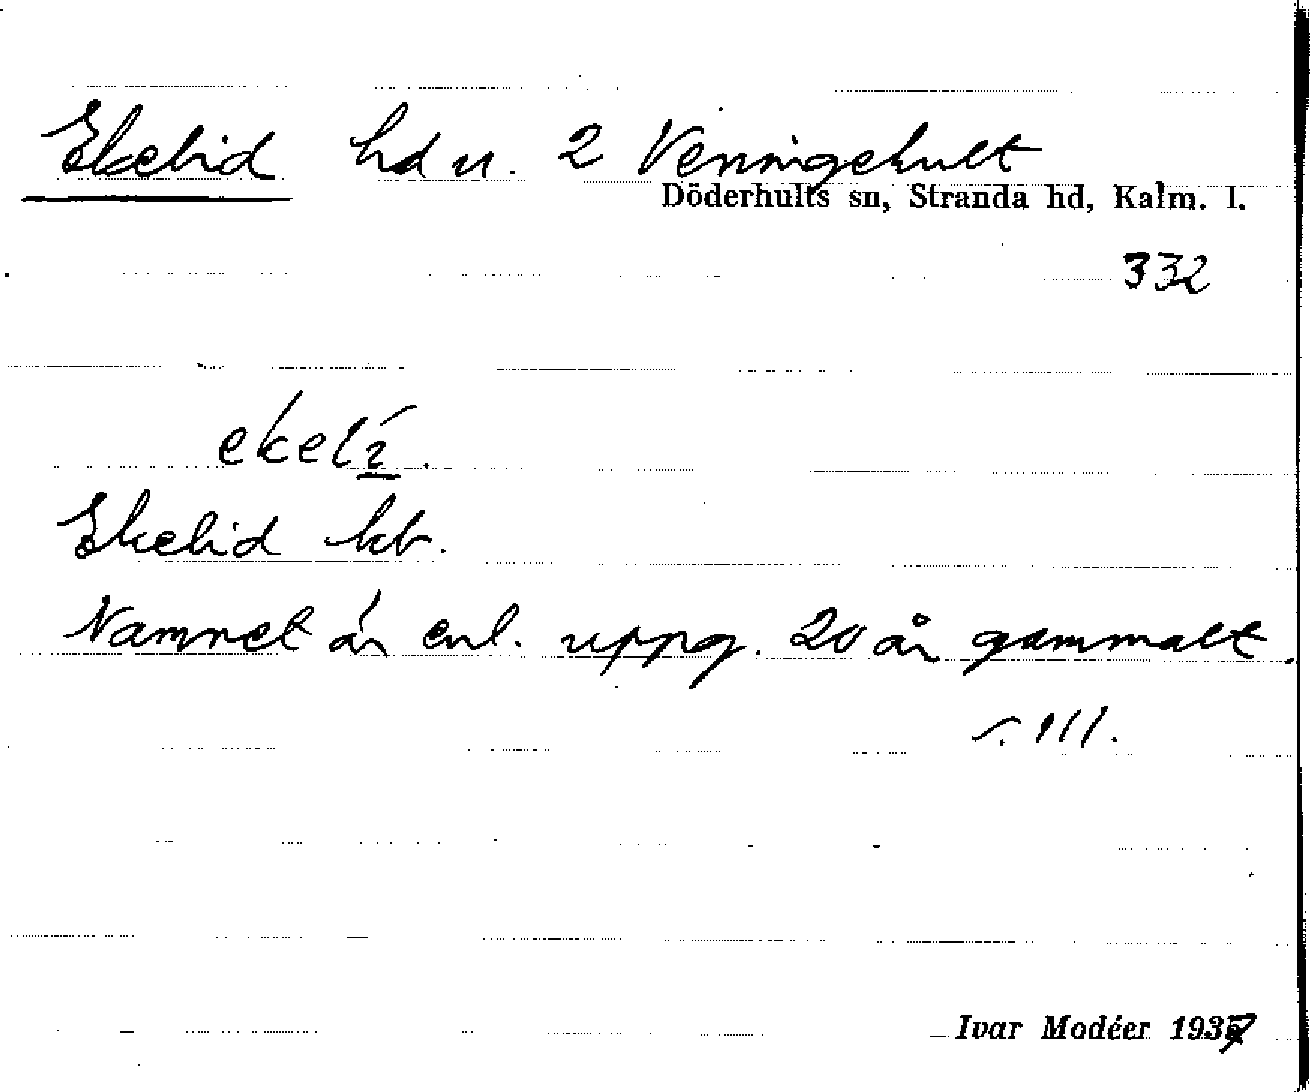 Ekelid hd u. 2 Venningehult
Döderhults sn, Stranda hd, Kalm. l.
332
ekelí.
Ekelid kb.
Namnet är enl. uppg. 20 år gammalt.
Ivar Modéer 1937